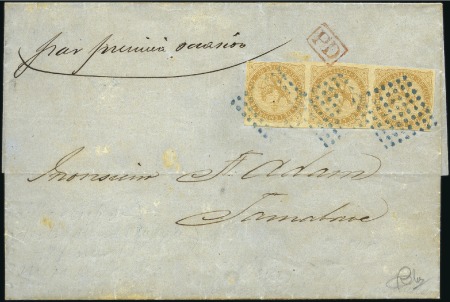 par premiere occasion
PD
Monsieur F. Adam
Tamatave